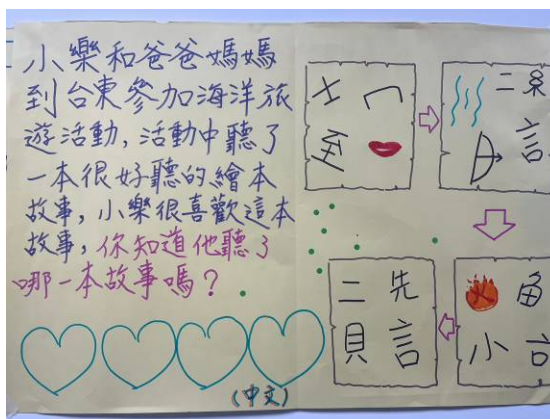 小樂和爸爸媽媽
到台東參加海洋旅
遊活動，活動中聽了
一本很好聽的繪本
故事，小樂很喜歡這本
故事，你知道他聽了
哪一本故事嗎？
(中文)
士
至
二 糸
言
小
二 先
貝 言